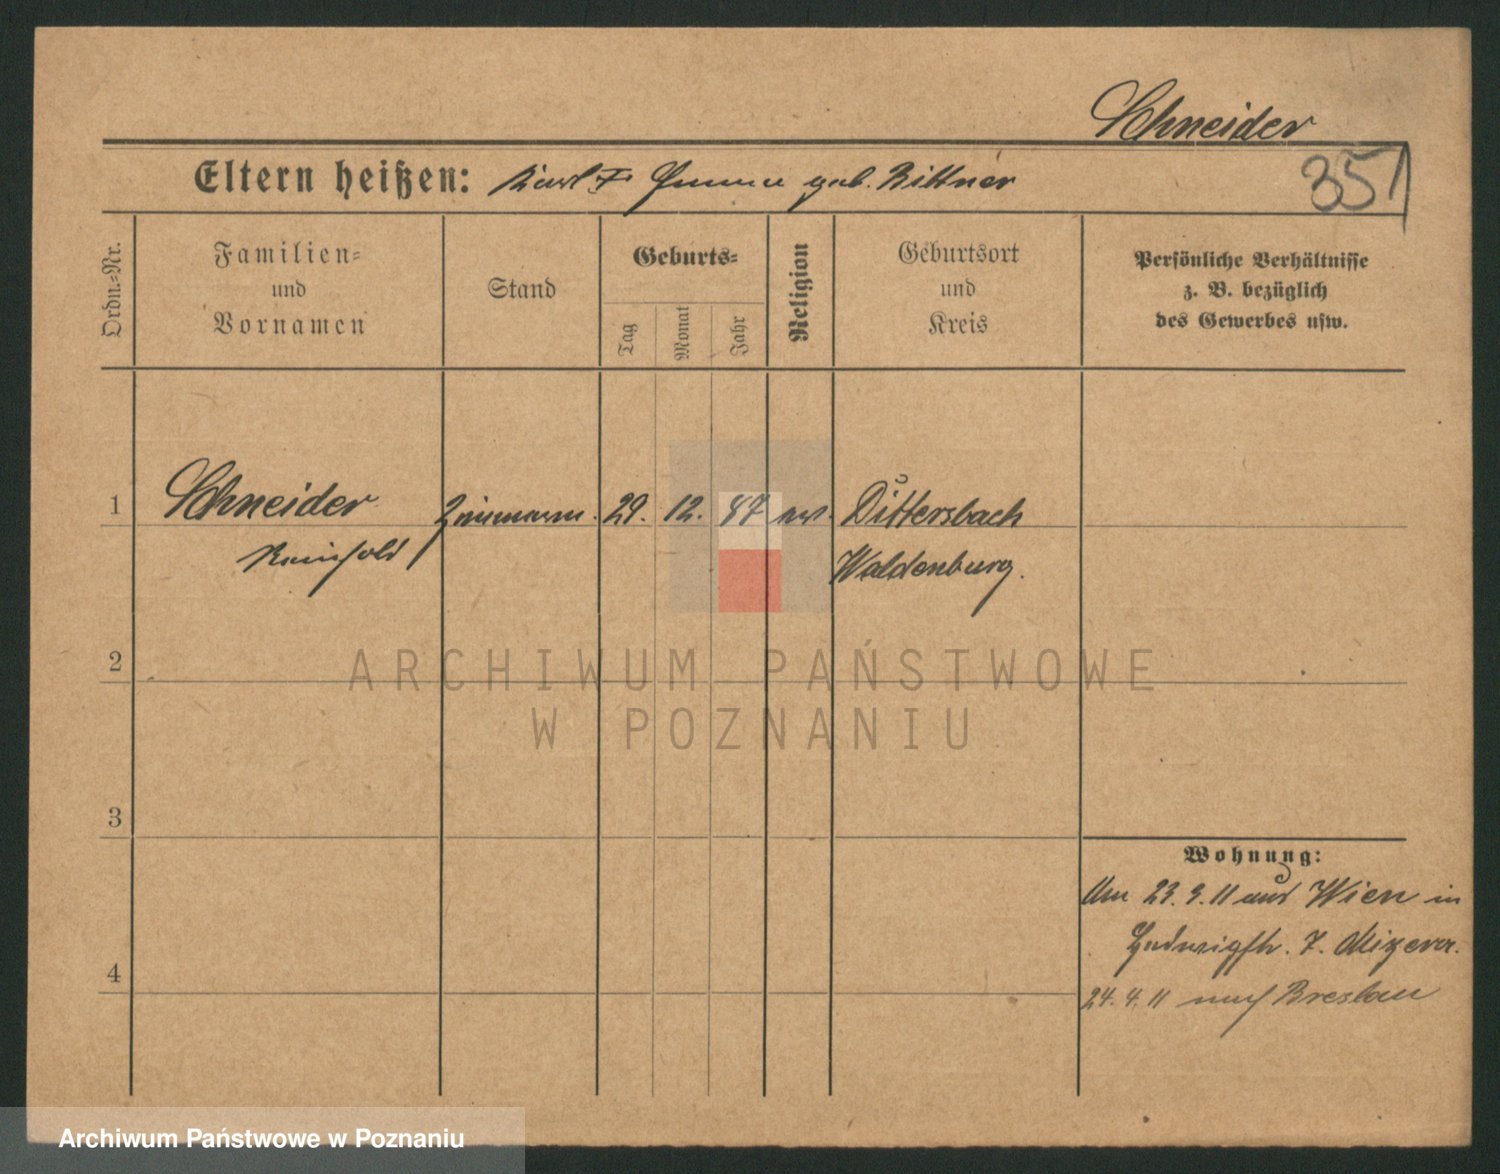 Schneider
351
Eltern heißen: Karl F Emma geb. Bittner
Ordn.-Nr.
Familien-
und
Vornamen
Stand
Geburts-
Tag
Monat
Jahr
Religion
Geburtsort
und
Kreis
Persönliche Verhältnisse
z. B. bezüglich
des Gewerbes usw.
1 Schneider Zimmerm. 29. 12. 87 ev. Dittersbach
Reinhold Waldenburg.
2
ARCHIWUM PAŃSTWOWE
W POZNANIU
3
Wohnung:
Am 23. 3. 11 aus Wien in
Ludwigstr. 7.
4
24. 4. 11 nach Breslau
Archiwum Państwowe w Poznaniu